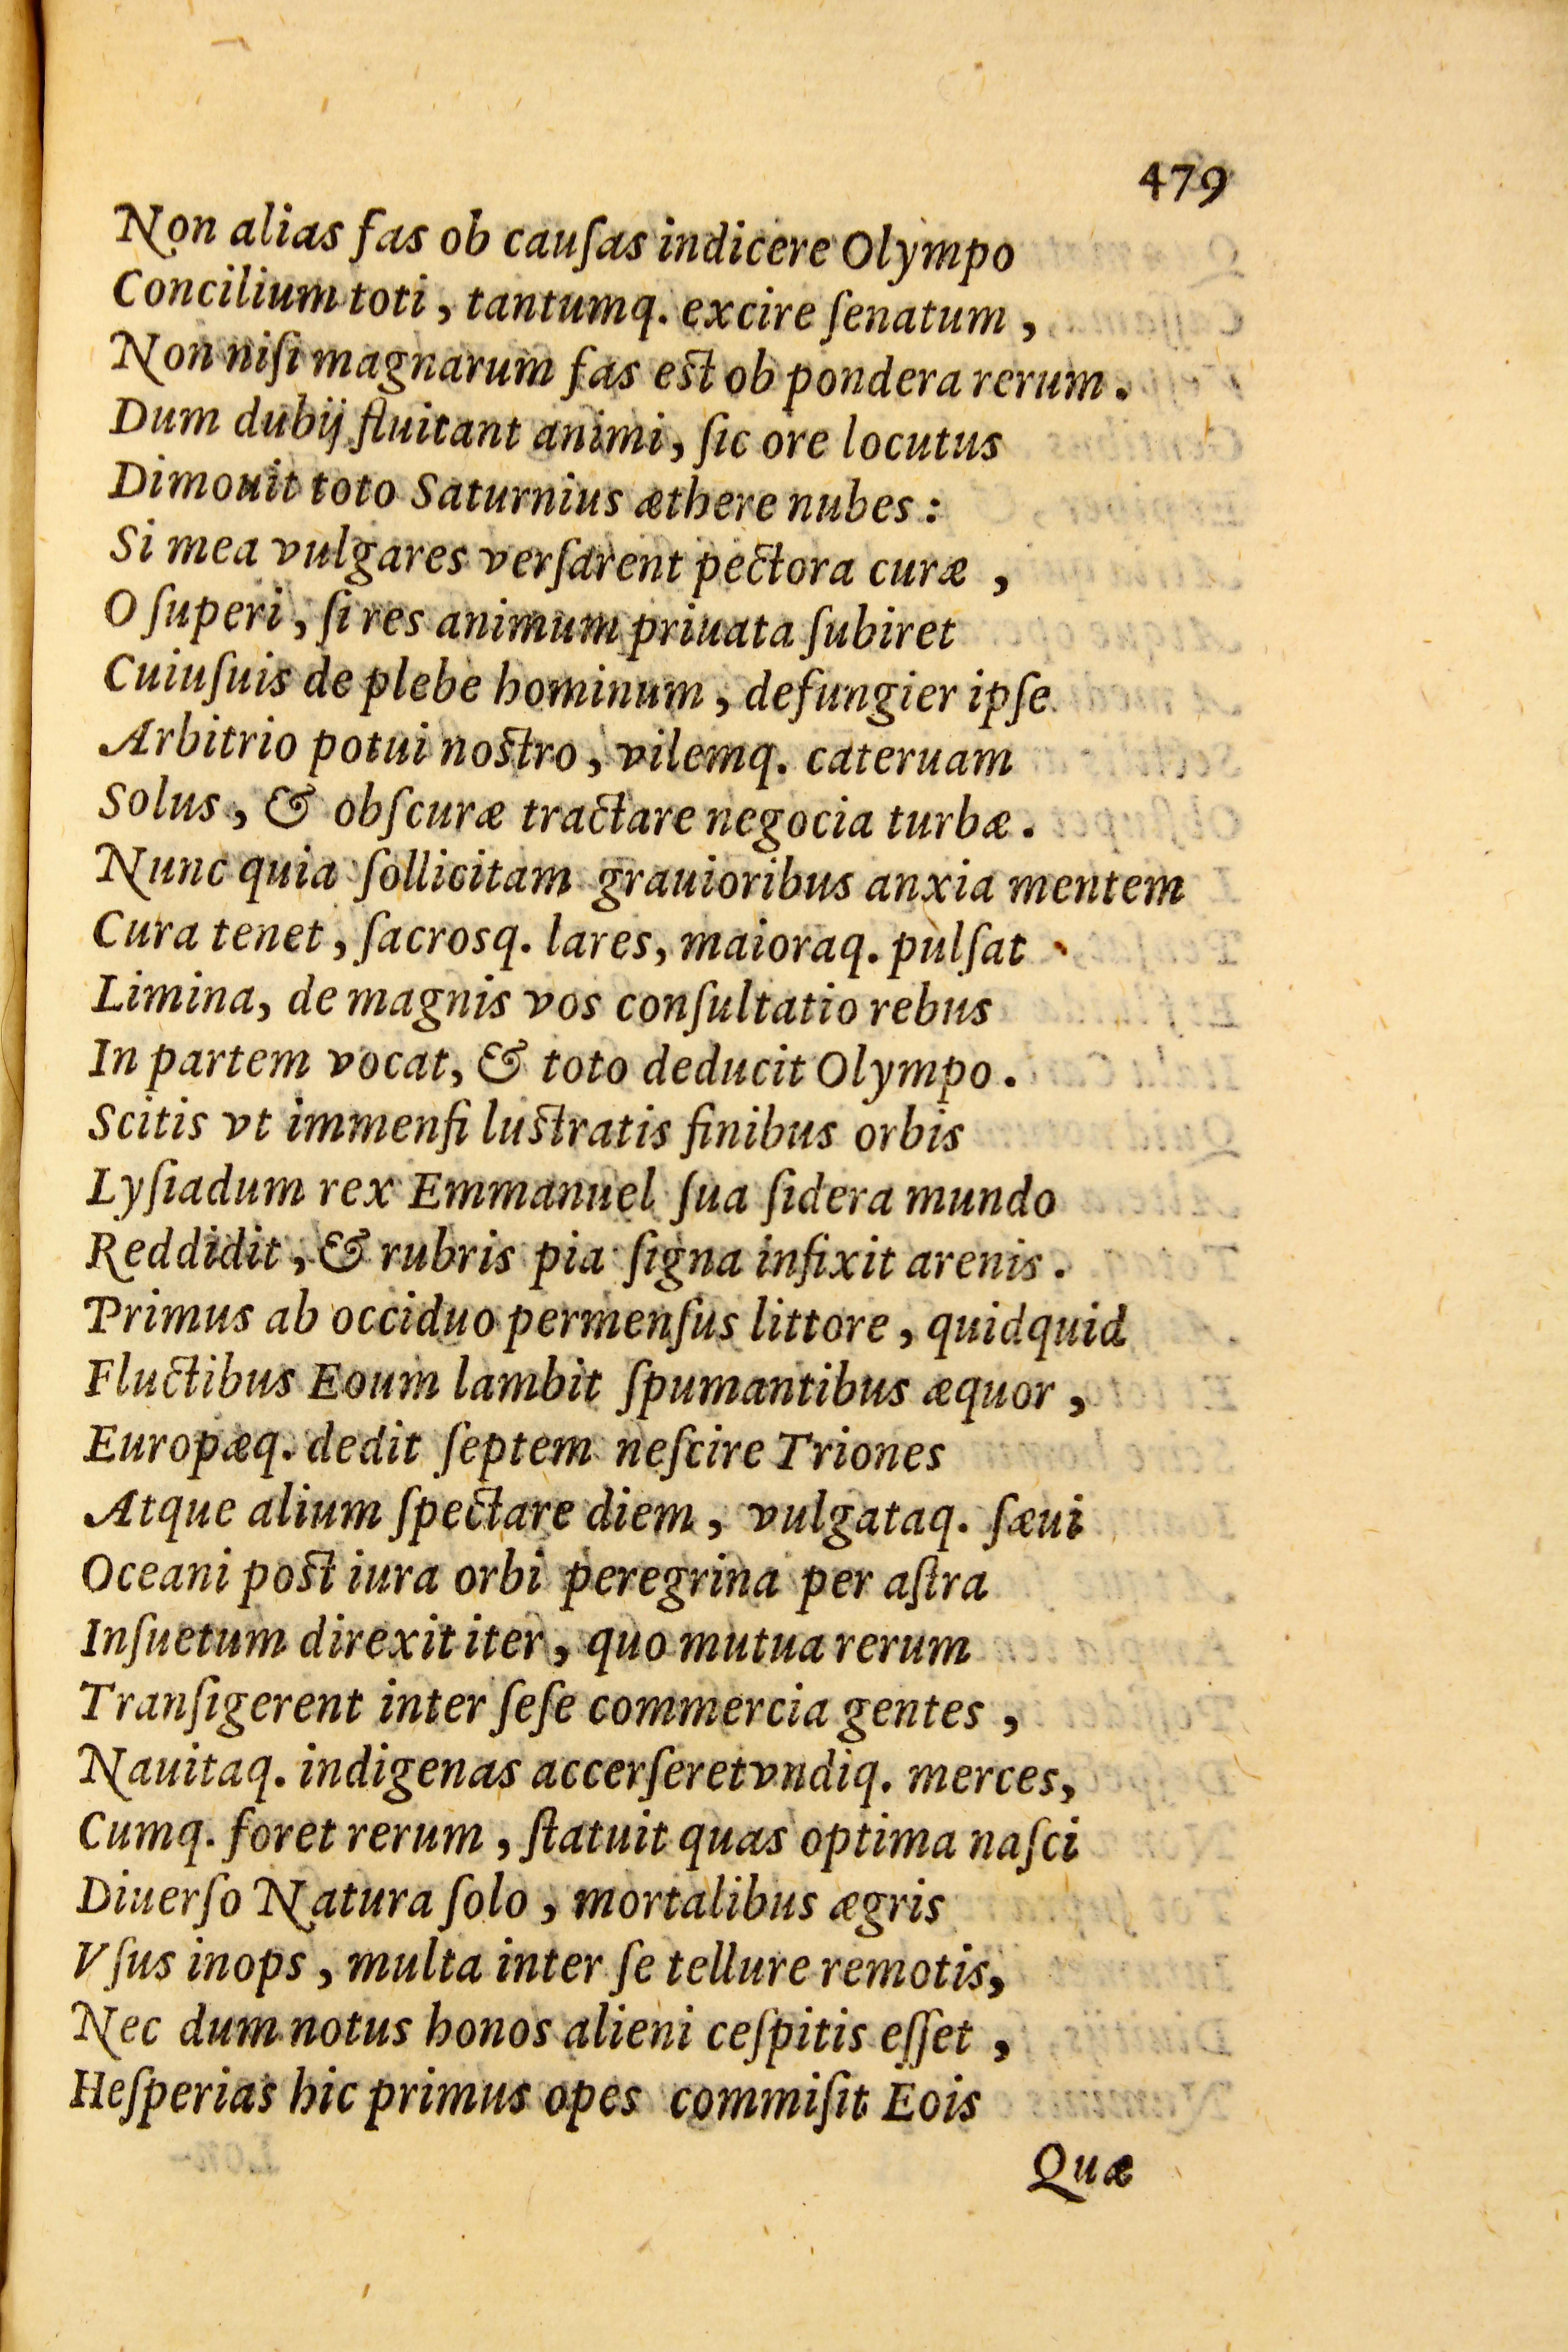 479
Non alias fas ob cauſas indicere Olympo
Concilium toti, tantumq. excire ſenatum,
Non niſi magnarum fas est ob pondera rerum.
Dum dubij fluitant animi, ſic ore locutus
Dimouit toto Saturnius æthere nubes:
Si mea vulgares verſarent pectora curæ,
O ſuperi, ſi res animum priuata ſubiret
Cuiuſuis de plebe hominum, defungier ipſe
Arbitrio potui nostro, vilemq. cateruam
Solus, & obſcuræ tractare negocia turbæ.
Nunc quia ſollicitam grauioribus anxia mentem
Cura tenet, ſacrosq. lares, maioraq. pulſat
Limina, de magnis vos conſultatio rebus
In partem vocat, & toto deducit Olympo.
Scitis vt immenſi lustratis finibus orbis
Lyſiadum rex Emmanuel ſua ſidera mundo
Reddidit, & rubris pia ſigna infixit arenis.
Primus ab occiduo permenſus littore, quidquid
Fluctibus Eoum lambit ſpumantibus æquor,
Europæq. dedit ſeptem neſcire Triones
Atque alium ſpectare diem, vulgataq. ſæui
Oceani post iura orbi peregrina per aſtra
Inſuetum direxit iter, quo mutua rerum
Tranſigerent inter ſeſe commercia gentes,
Nauitaq. indigenas accerſeret vndiq. merces,
Cumq. foret rerum, ſtatuit quas optima naſci
Diuerſo Natura ſolo, mortalibus ægris
Vſus inops, multa inter ſe tellure remotis,
Nec dum notus honos alieni ceſpitis eſſet,
Heſperias hic primus opes commiſit Eois
Quæ